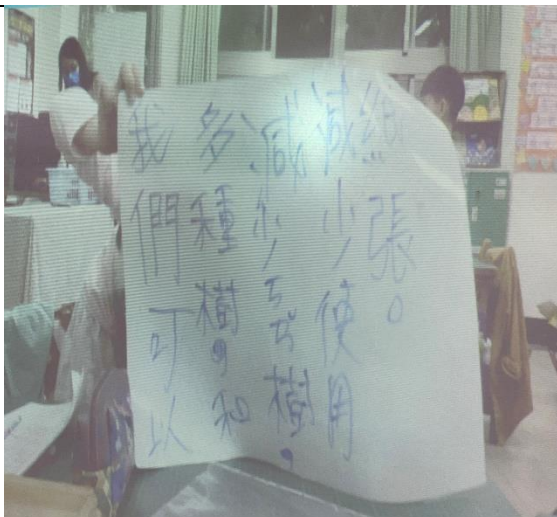 我們可以
多種樹，和
減少ㄎㄢˇ樹，
減少使用
紙張。